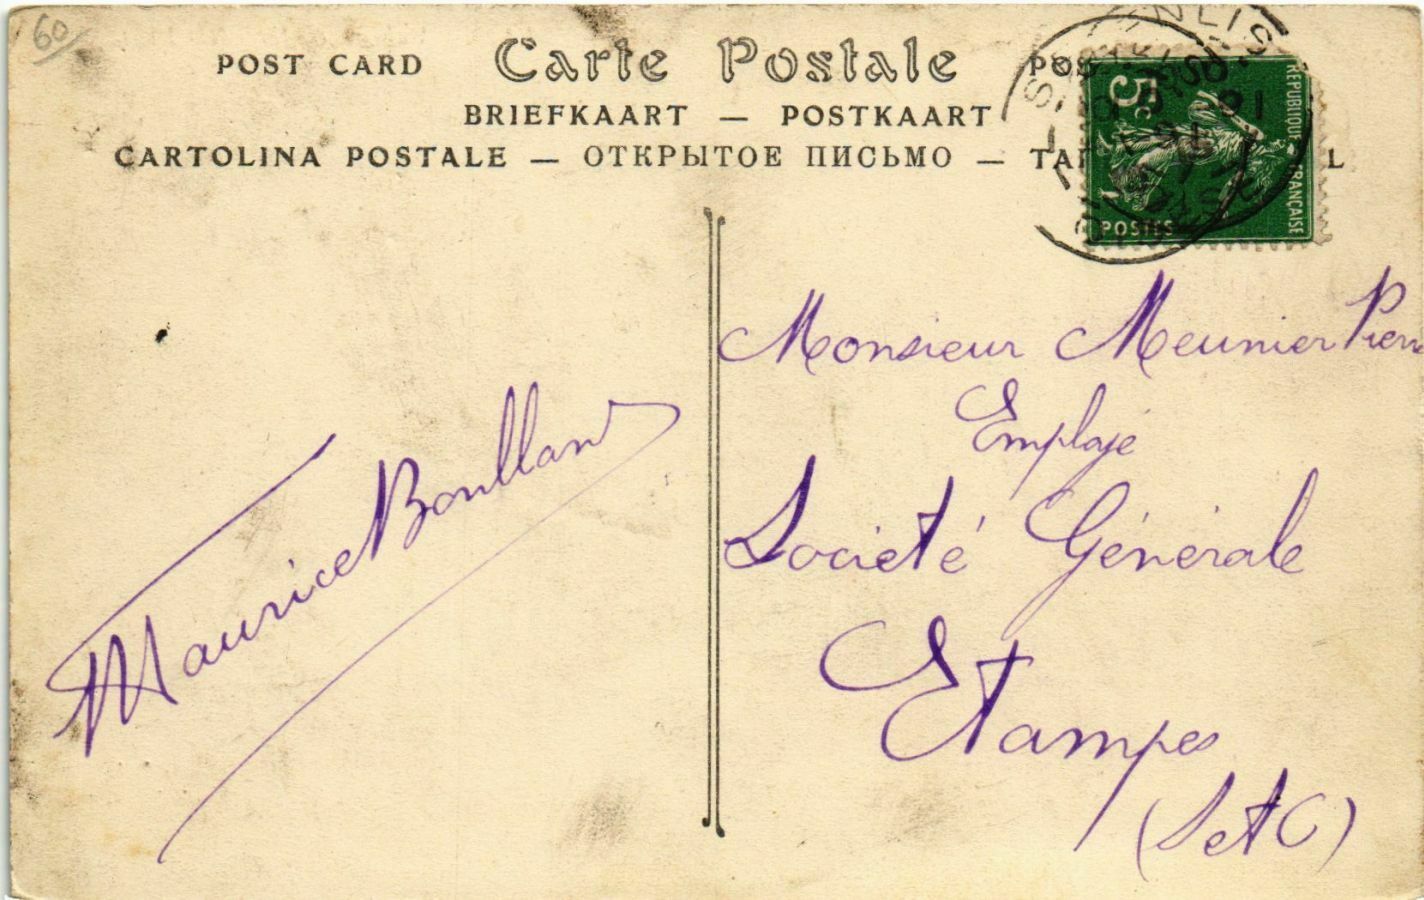 60
POST CARD Carte Postale POS
BRIEFKAART — POSTKAART
CARTOLINA POSTALE — ОТКРЫТОЕ ПИСЬМО — TA L
5c
REPUBLIQUE FRANÇAISE
POSTES
Monsieur Meunier Pierre
Employé
Société Générale
Etampes
(S et O)
Maurice Boulland